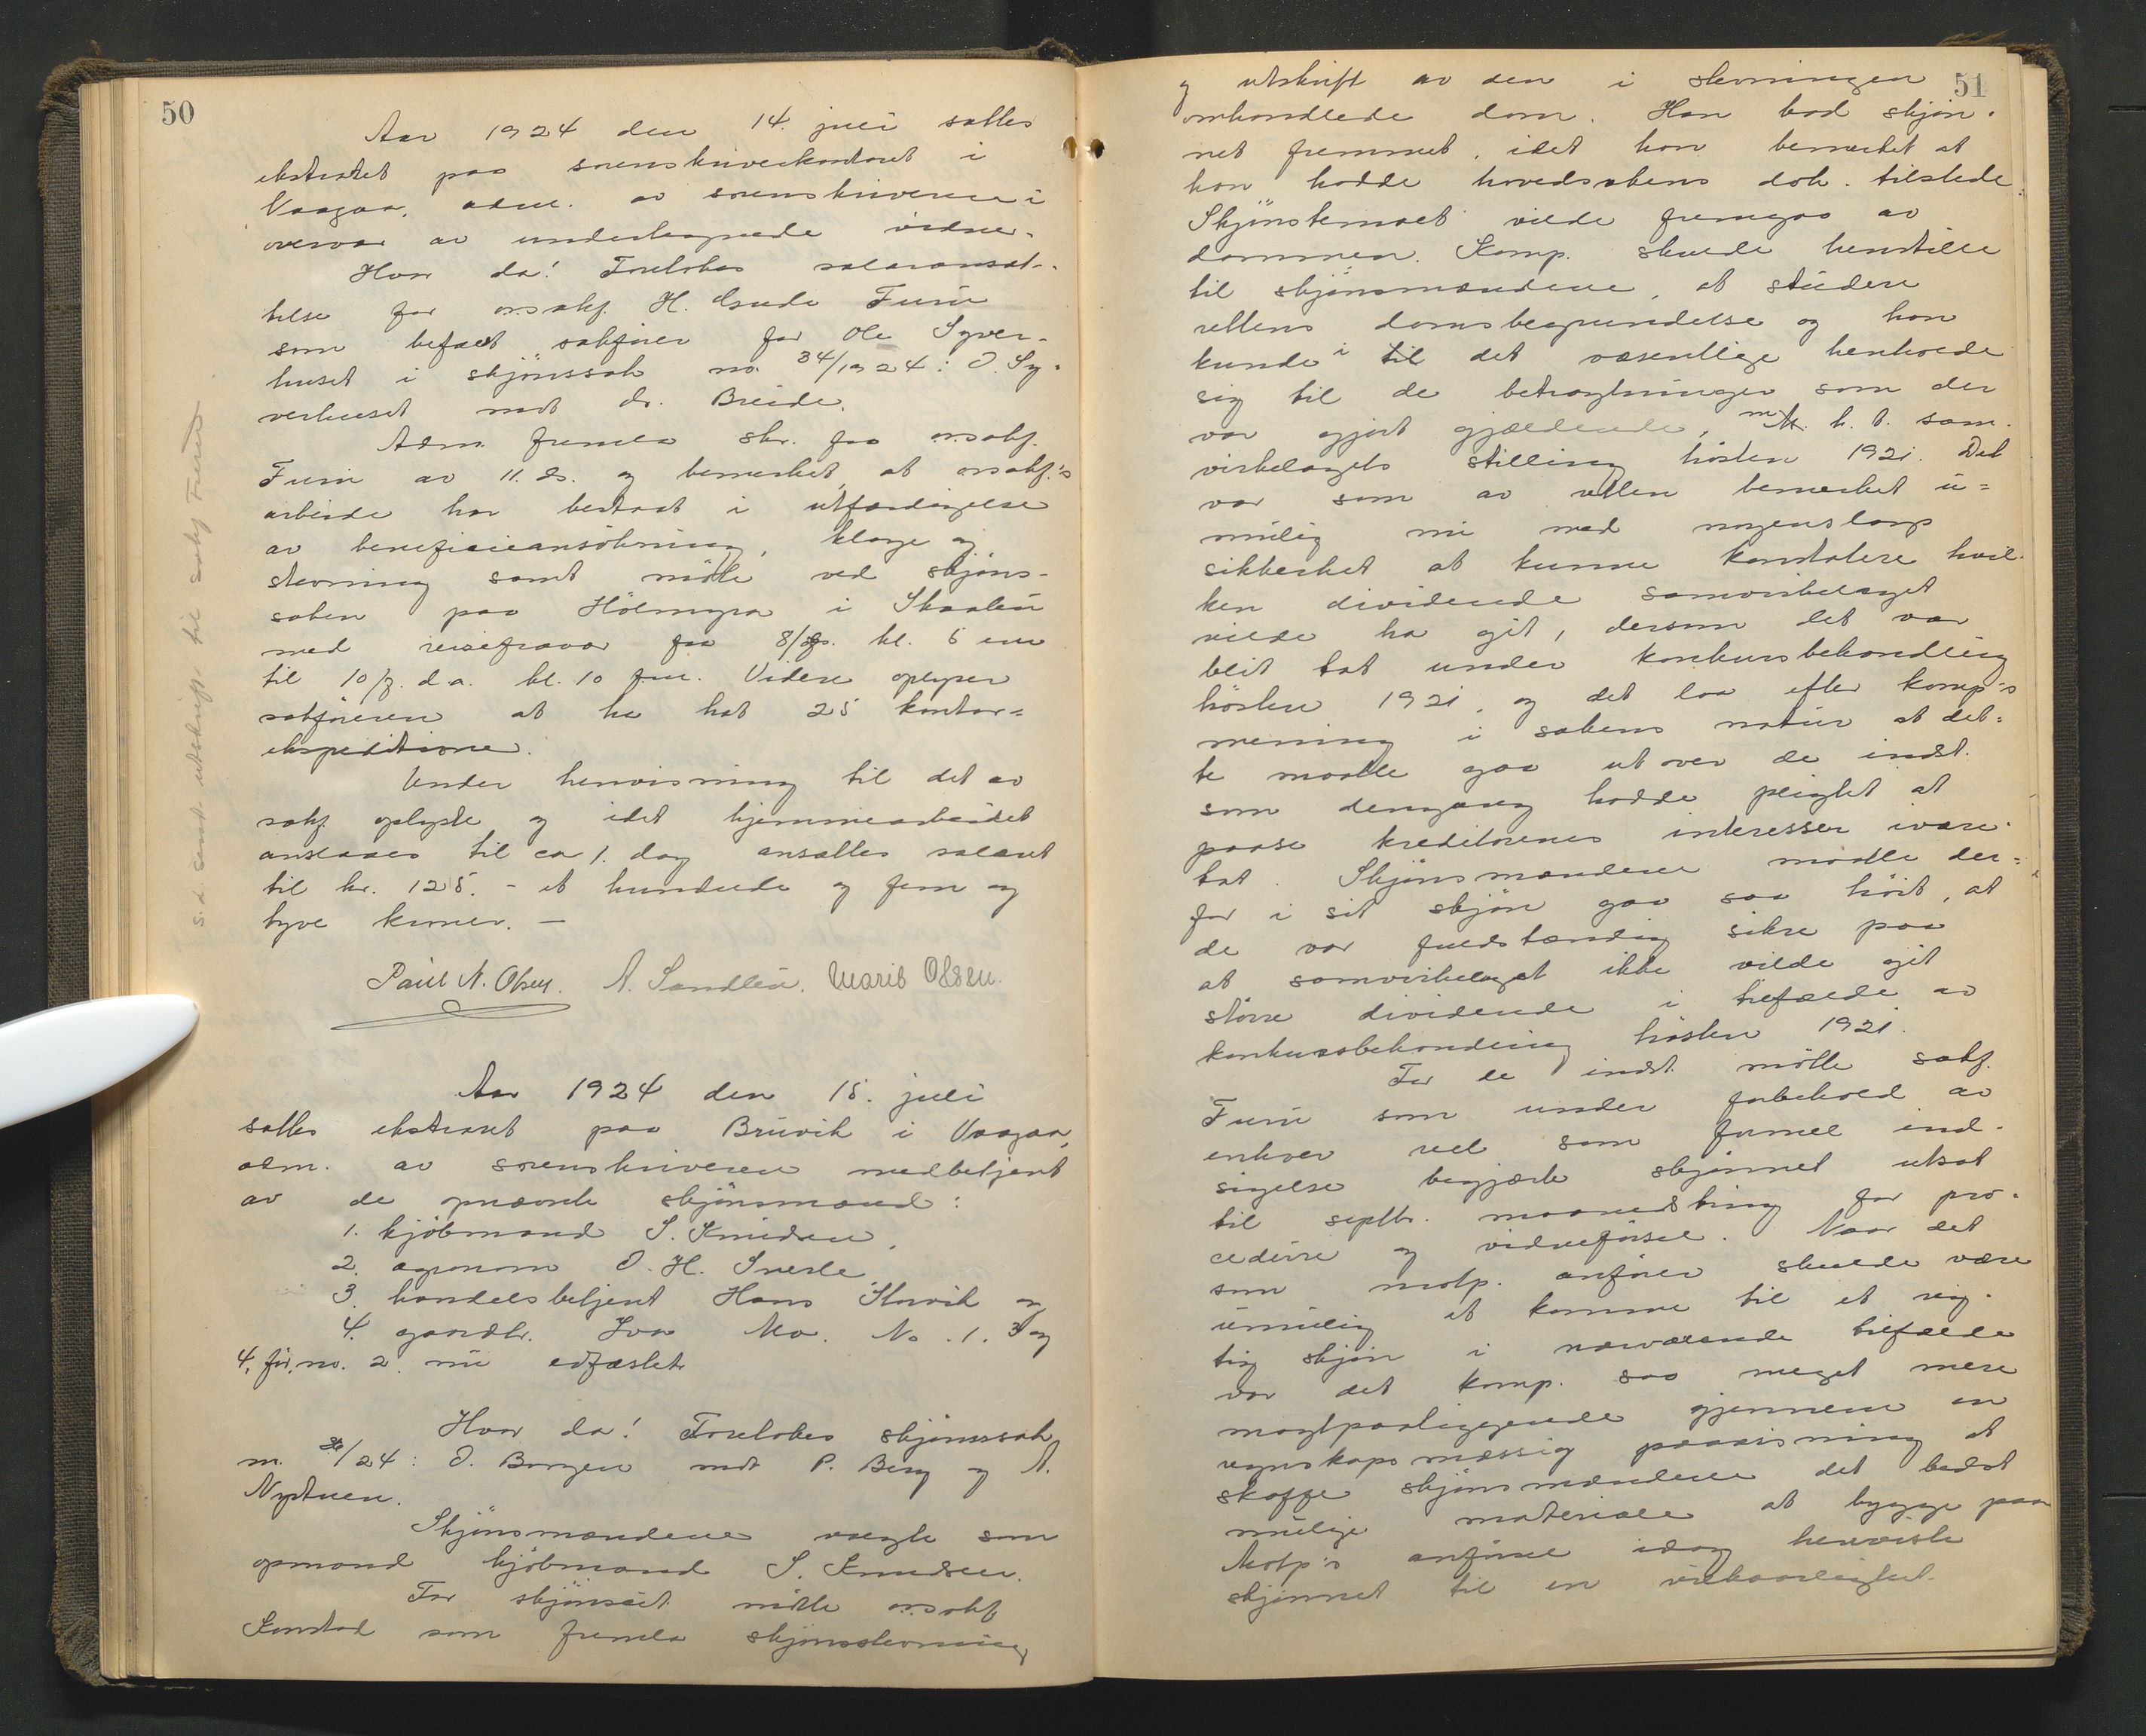 50
Aar 1924 den 14. juli sattes
ekstraret paa sorenskriverkontoret i
Vaagaa, adm. av sorenskriveren i
overvær av undertegnede vidner.
Hvor da! Foretokes salæransæt-
telse for o.r.sakf. H. Gude Furu
som befalt sakfører for Ole Syver-
huset i skjønssak no. 34/1924: O. Sy-
verhuset mot dr. Breide.
Adm. fremla skr. fra o.r.sakf.
Furu av 11. ds. og bemerket, at o.r.sakf.'s
arbeide har bestaat i utfærdigelse
av beneficieansökning, klage og
stevning samt möte ved skjøns-
saken paa Hölmyra i Skaabu
med reisefravær fra 8/7. kl. 6 em
til 10/7. d.a. kl. 10 fm. Videre oplyser
sakføreren at ha hat 25 kontor-
ekspeditioner.
Under henvisning til det av
sakf. oplyste og idet hjemmearbeidet
anslaaes til ca 1. dag ansættes salæret
til kr. 125.- et hundrede og fem og
tyve kroner.-
Paul N. Olsen. A. Sandlu. Marit Olsen.
s.d. sendt utskrift til sakf Furu
Aar 1924 den 15. juli
sattes ekstraret paa Bruvik i Vaagaa,
adm. av sorenskriveren medbetjent
av de opnævnte skjönsmænd:
1. kjöbmand S. Knudsen,
2. agronom O. H. Sverle,
3. handelsbetjent Hans Storvik og
4. gaardbr. Ivar Mo. No. 1. 3 og
4, før, no. 2. nu edfæstet
Hvor da! Foretokes skjønssak
nr. /24: O. Borgen mot P. Berg og A.
Nystuen.
Skjönsmændene valgte som
opmand kjöbmand S. Knudsen.
For skjönscit. mötte o.r.sakf.
Konstad som fremla skjønsstevning
51
og utskrift av den i stevningen
omhandlede dom. Han bad skjön-
net fremmet, idet han bemerket at
han hadde hovedsakens dok. tilstede.
Skjönstemaet vilde fremgaa av
dommen. Komp. skulde henstille
til skjönsmændene, at studere
rettens domsbegrundelse og han
kunde i til det væsentlige henholde
sig til de betragtninger som der
var gjort gjældende, m. h. t. sam-
virkelagets stilling hösten 1921. Det
var som av retten bemerket u-
mulig nu med nogenslags
sikkerhet at kunne konstatere hvil-
ken dividende samvirkelaget
vilde ha git, dersom det var
blit tat under konkursbehandling
hösten 1921, og det laa efter komp's
mening i sakens natur at det-
te maatte gaa ut over de indst.
som dengang hadde pligtet at
paase kreditorenes interesser ivare-
tat. Skjönsmændene maatte der-
for i sit skjön gaa saa höit, at
de var fuldstændig sikre paa
at samvirkelaget ikke vilde git
större dividende i tilfælde av
konkursbehandling hösten 1921.
For de indst. mötte sakf.
Furu som under forbehold av
enhver reel som formel ind-
sigelse begjærte skjönnet utsat
til septbr. maanedsting for pro-
cedure og vidneførsel. Naar det
som motp. anfører skulde være
umulig at komme til et rig-
tig skjön i nærværende tilfælde
var det komp. saa meget mere
magtpaaliggende gjennem en
regnskapsmæssig paavisning at
skaffe skjönsmændene det bedst
mulige materiale at bygge paa
Motp's anførsel idag henviste
skjønnet til en vilkaarlighet.